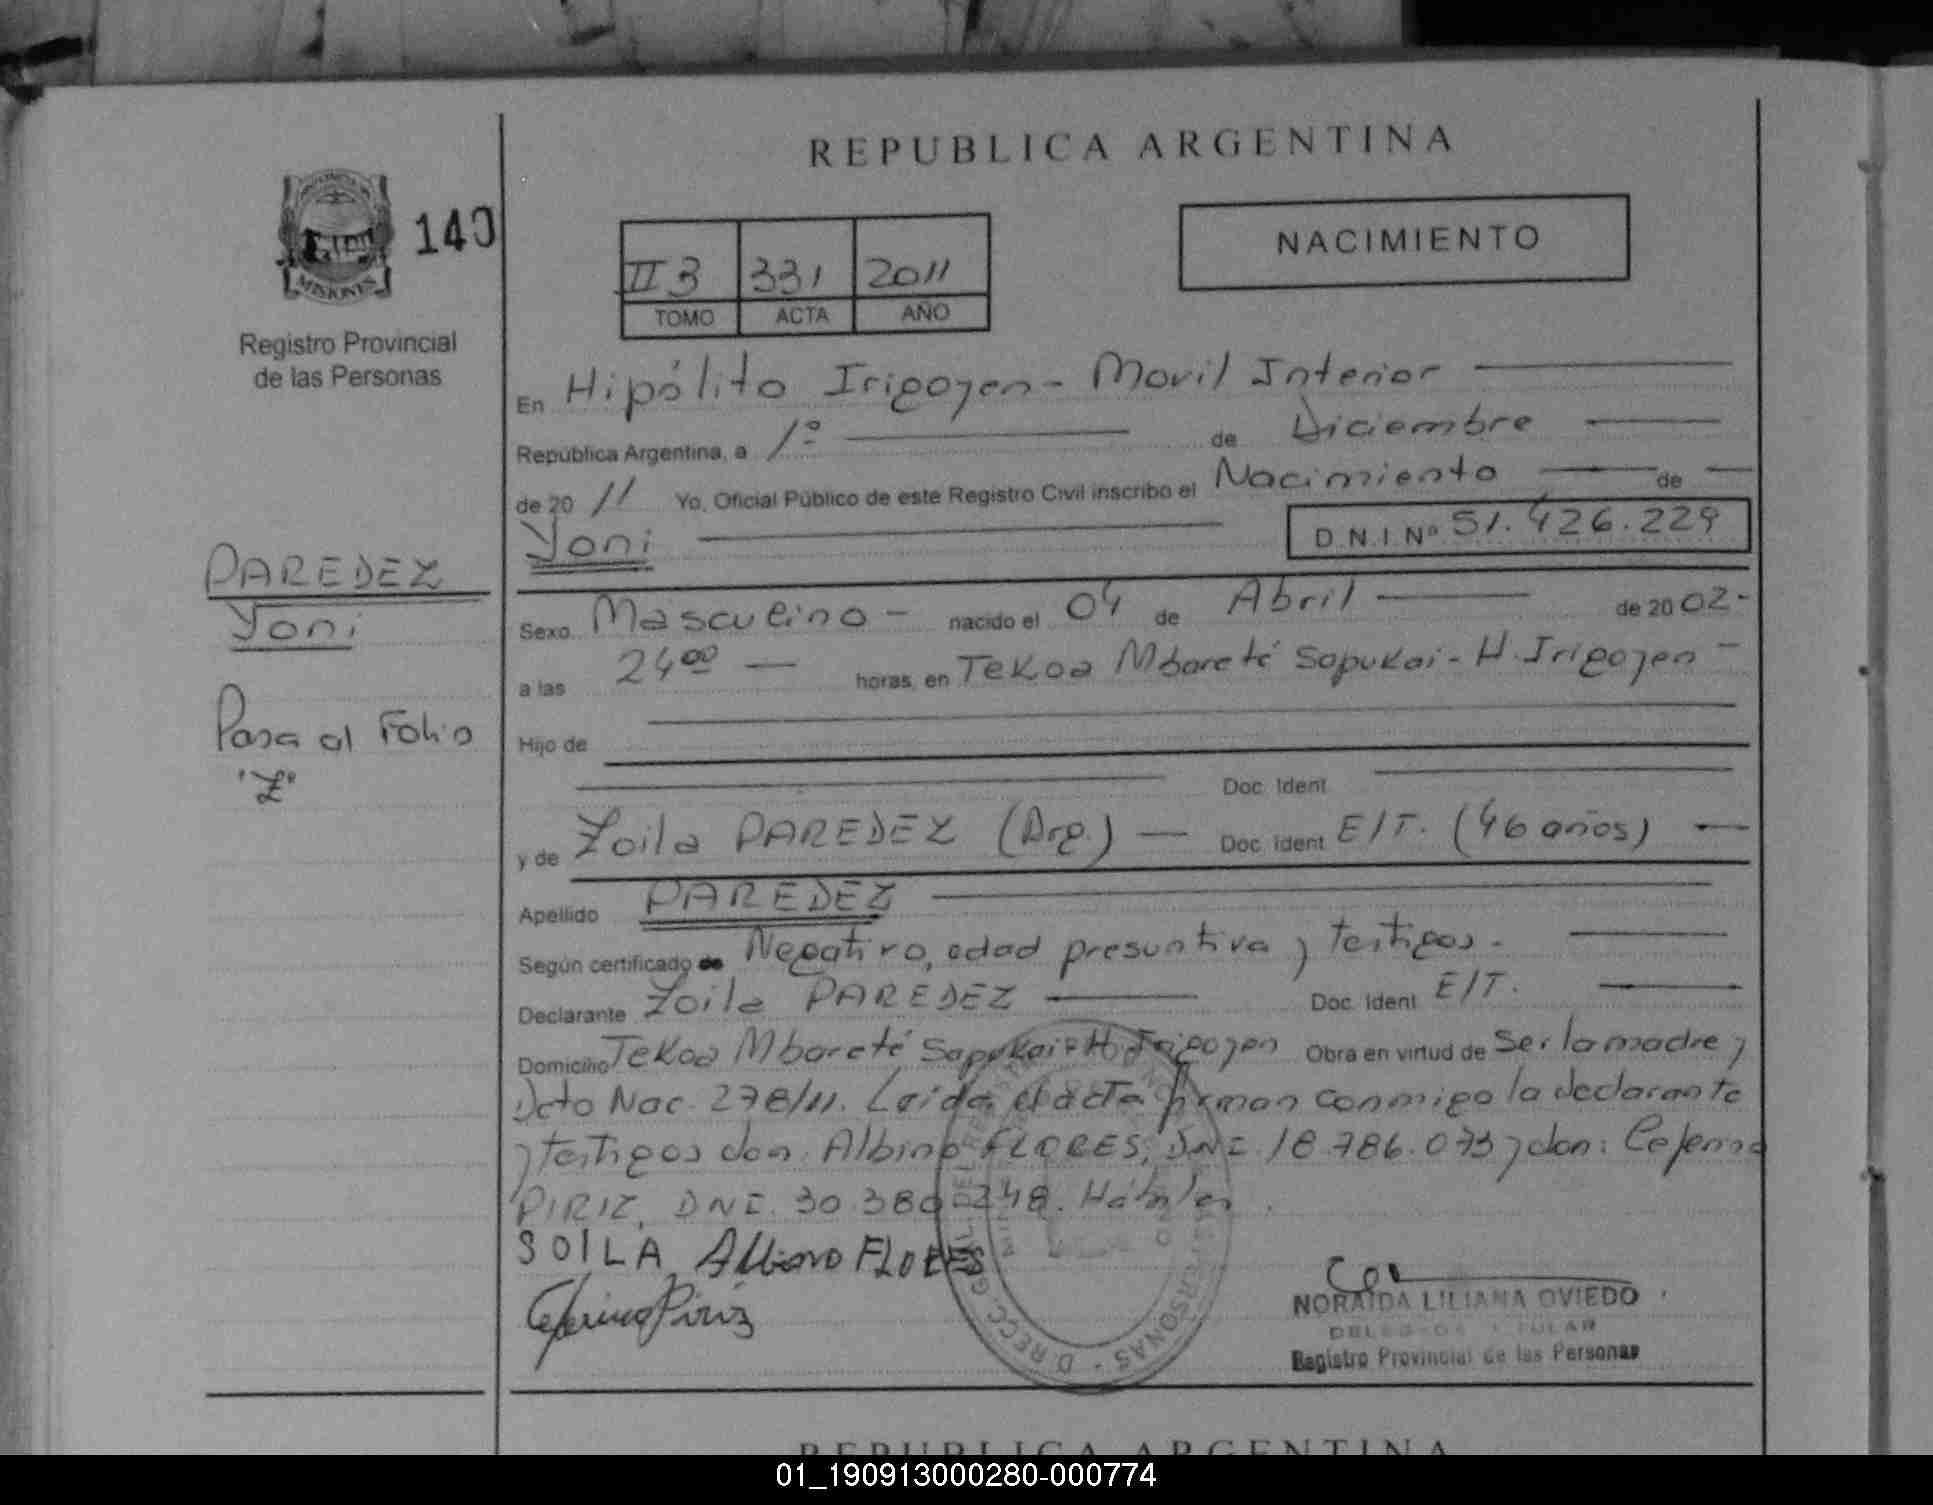 REPUBLICA ARGENTINA
PROVINCIA DE
MISIONES
140
Registro Provincial
de las Personas
II 3 331 2011
TOMO ACTA AÑO
NACIMIENTO
En Hipólito Irigoyen - Movil Interior
República Argentina, a 1º de Diciembre
de 20 11 Yo, Oficial Público de este Registro Civil inscribo el Nacimiento de
Yoni D.N.I. Nº 51.426.229
PAREDEZ
Yoni
Pasa al Folio
"Z"
Sexo Masculino - nacido el 04 de Abril de 20 02-
a las 24⁰⁰ horas, en Tekoa Mbareté Sapukai - H. Irigoyen -
Hijo de
Doc. Ident.
y de Zoila PAREDEZ (Arg.) Doc. Ident. E/T. (46 años)
Apellido PAREDEZ
Según certificado de Negativo, edad presuntiva y testigos.
Declarante Zoila PAREDEZ Doc. Ident. E/T.
Domicilio Tekoa Mbareté Sapukai - H. Irigoyen Obra en virtud de Ser la madre y
Dcto Nac. 278/11. Leída el acta firman conmigo la declarante
y testigos don: Albino FLORES, DNI. 18.786.073 y don: Ceferino
PIRIZ, DNI. 30.380.248. Hábiles.
SOILA Albino FLORES
Ceferino Piriz
NORAIDA LILIANA OVIEDO
DELEGADA TITULAR
Registro Provincial de las Personas
REPUBLICA ARGENTINA
01_190913000280-000774